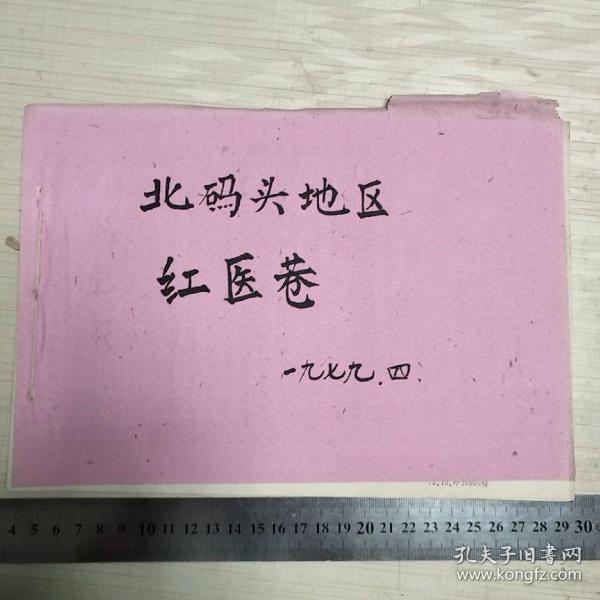 北码头地区
红医巷
一九七九.四.
4 5 6 7 8 9 10 11 12 13 14 15 16 17 18 19 20 21 22 23 24 25 26 27 28 29 30
孔夫子旧書网
www.kongfz.com